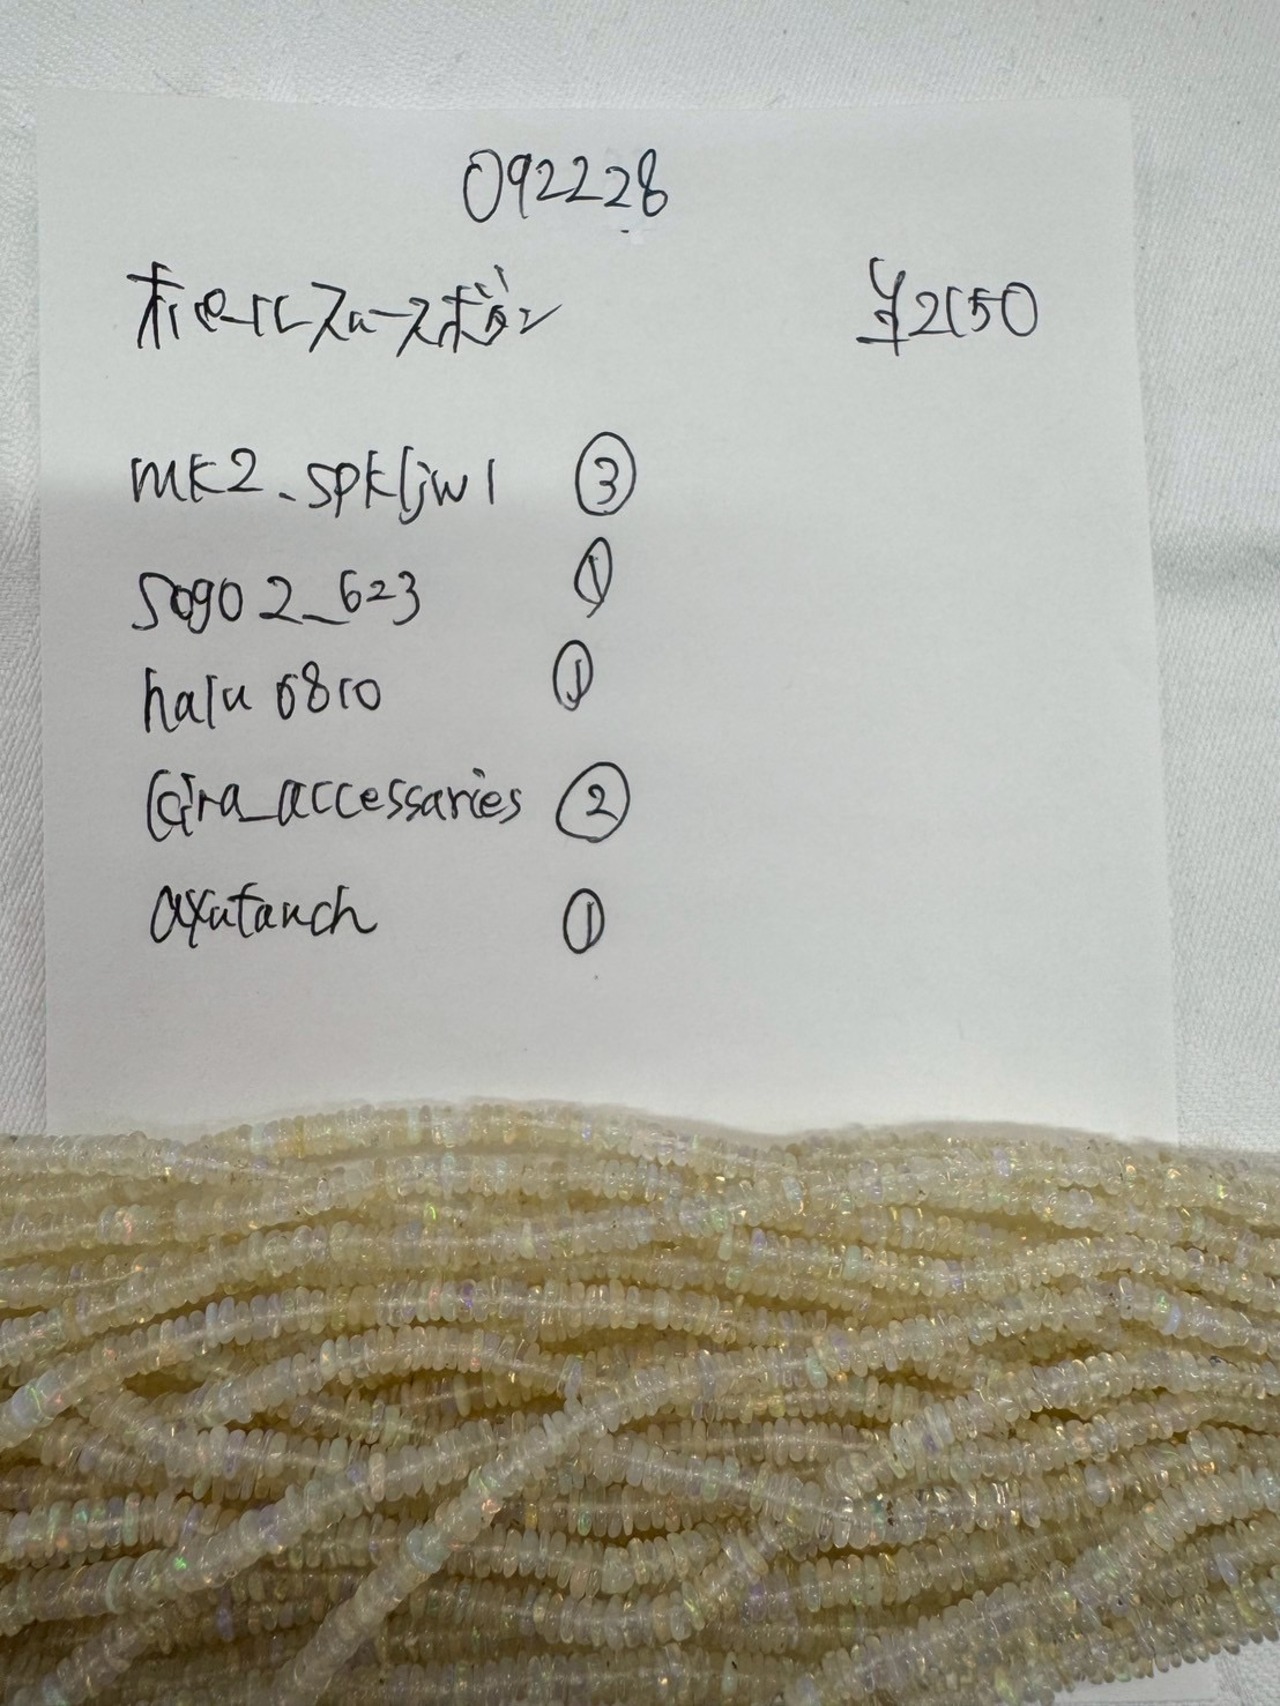 092228
オパールスムースボタン ¥2150
mk2_spkljw1 ③
sogo2_623 ①
halu0810 ①
@ira_accessaries ②
axutanch ①